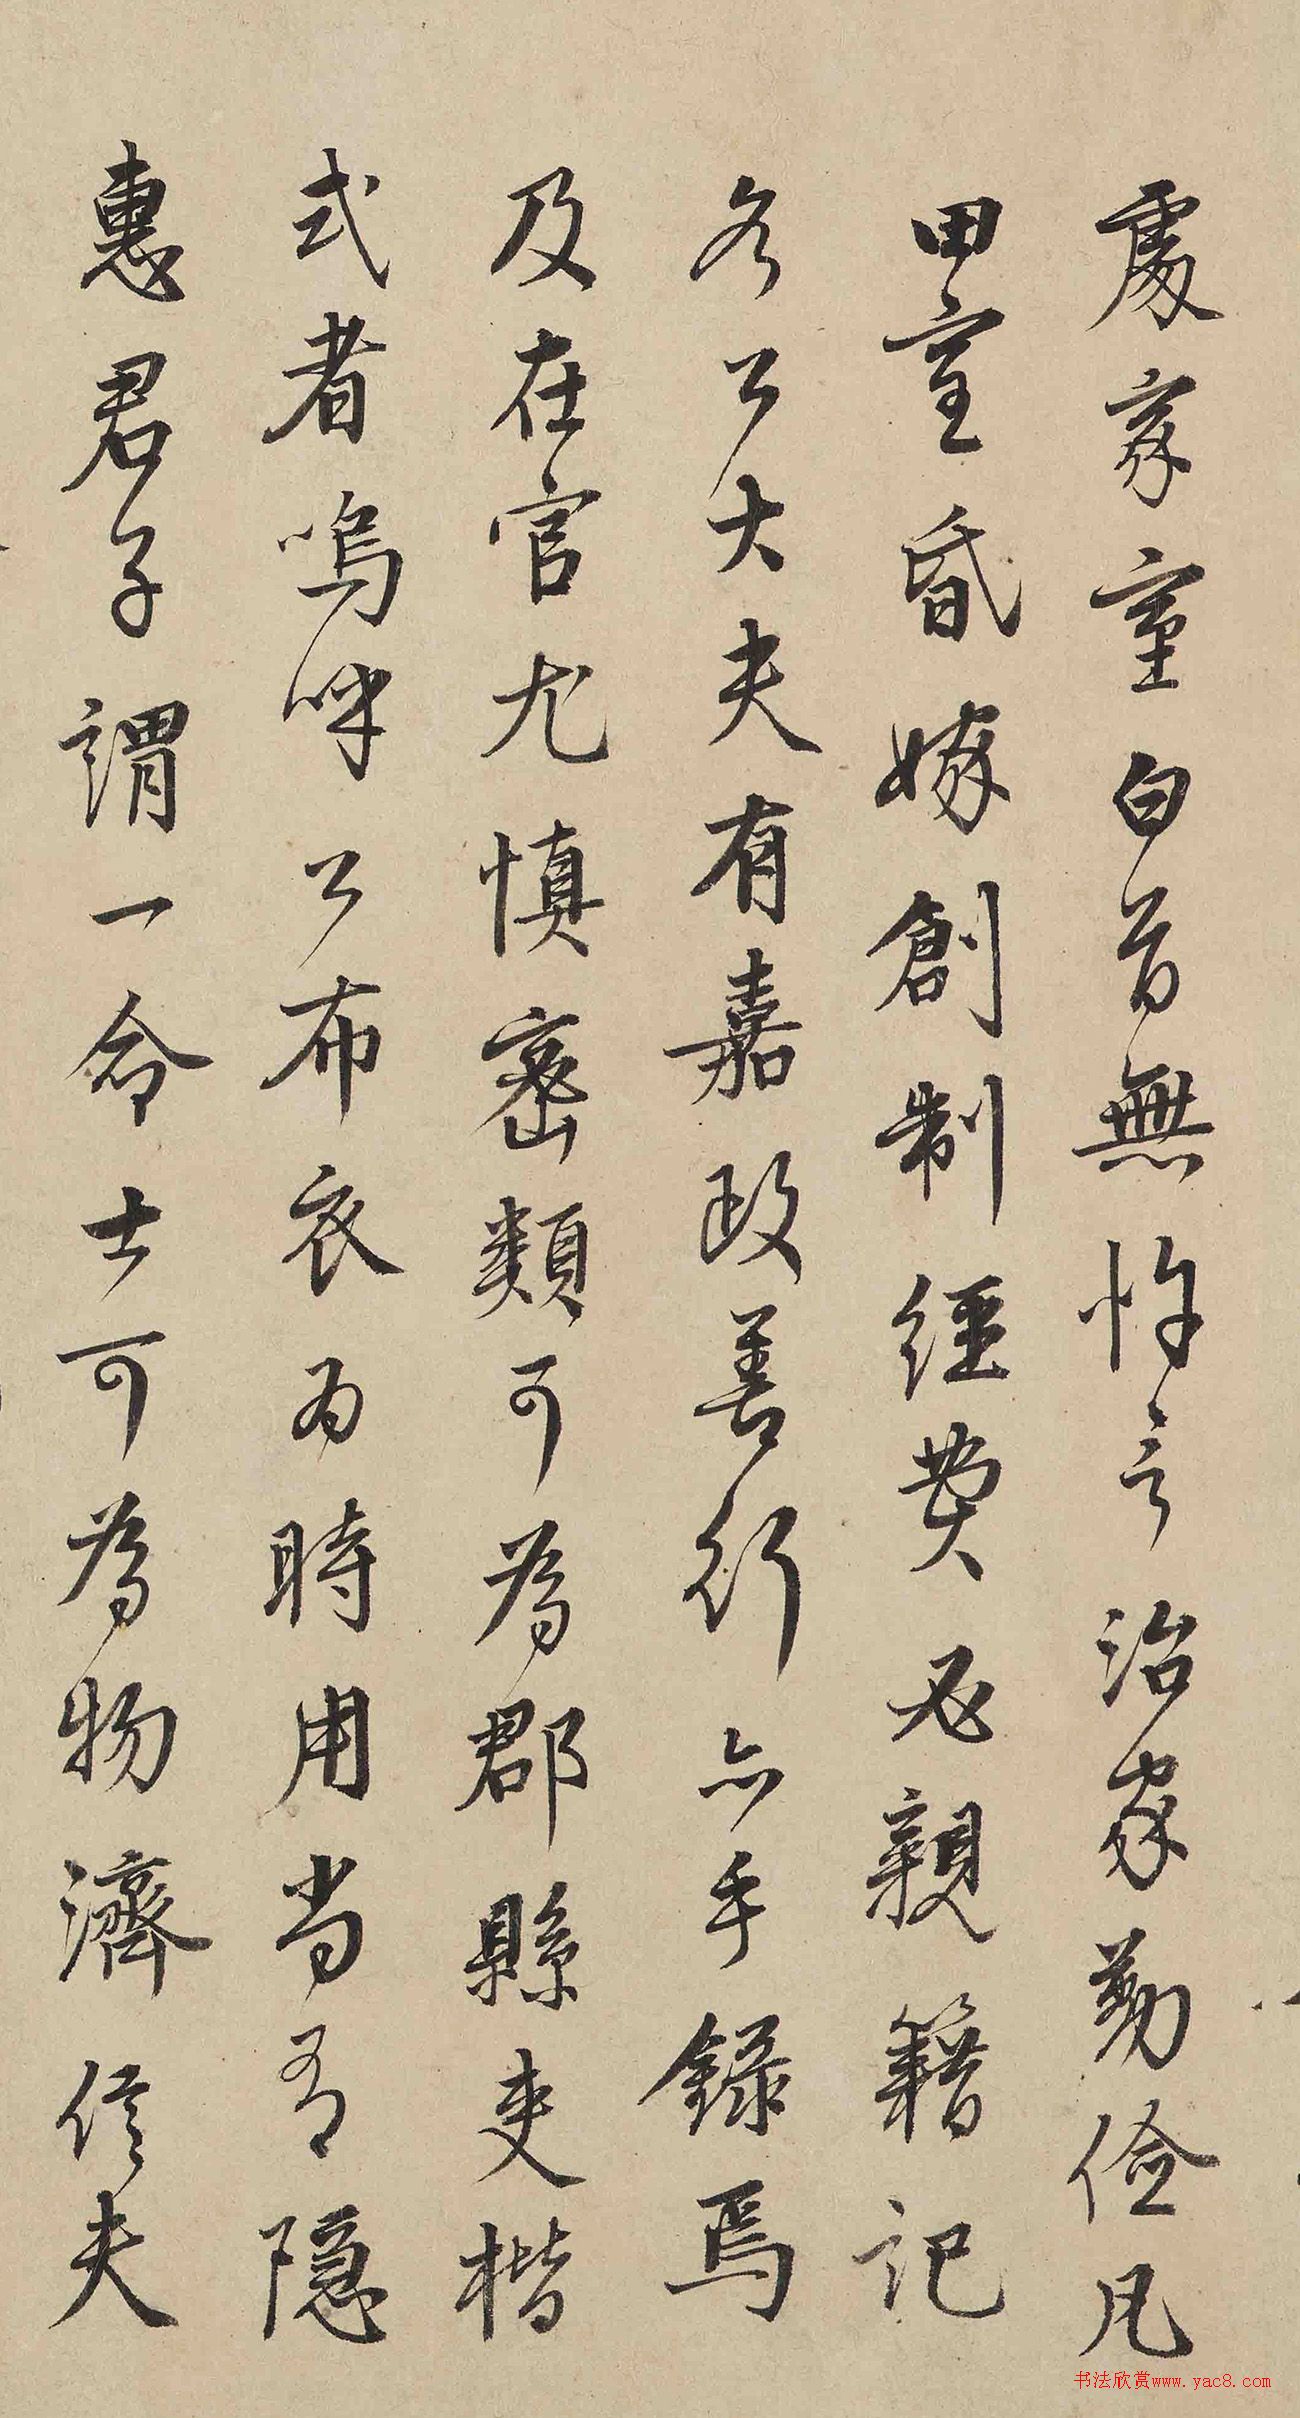 處家室白首無忤言治家勤儉凡
田室昏嫁創制經費必親籍記
名公大夫有嘉政善行亦手錄焉
及在官尤慎密類可為郡縣吏楷
式者嗚呼公布衣為時用尚有隱
惠君子謂一命士可為物濟信夫
书法欣赏www.yac8.com